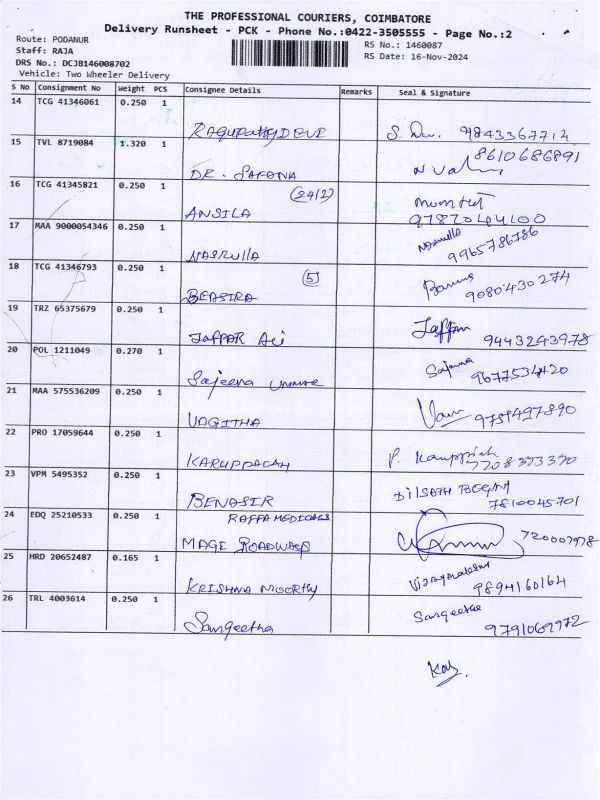 THE PROFESSIONAL COURIERS, COIMBATORE
Delivery Runsheet - PCK - Phone No.:0422-3505555 - Page No.:2
Route: PODANUR
Staff: RAJA
RS No.: 1460087
DRS No.: DCJB146008702
RS Date: 16-Nov-2024
Vehicle: Two Wheeler Delivery
S No Consignment No Weight PCS Consignee Details Remarks Seal & Signature
14 TCG 41346061 0.250 1
RAGUPATHY DEVE S. Dev. 9843367714
15 TVL 8719084 1.320 1
DR. SAFANA 8610686891
16 TCG 41345821 0.250 1 (2412)
ANSILA Mumtaj 9787044100
17 MAA 9000054346 0.250 1
NASRULLA Nasrulla 9965786786
18 TCG 41346793 0.250 1 (5)
BEASIRA 9080430274
19 TRZ 65375679 0.250 1
JAFFAR ALI Jaffar 9443243978
20 POL 1211049 0.270 1
Sajeena Ummar Sajeena 9677534420
21 MAA 575536209 0.250 1
VAGITHA 9751497890
22 PRO 17059644 0.250 1
KARUPPAIAH P. Karuppiah 7708373370
23 VPM 5495352 0.250 1
BENASIR DILSATH BEGAM 7810045701
24 EDQ 25210533 0.250 1 RAFFA MEDICALS
MAGE ROADWAYS
25 HRD 20652487 0.165 1
KRISHNA MOORTHY Vijayalakshmi 9894160164
26 TRL 4003614 0.250 1
Sangeetha Sangeetha 9791069972